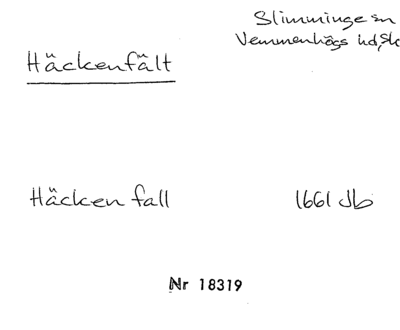 Slimminge sn
Vemmenhögs hd, Sk
Häckenfält
Häcken fall 1661 Jb
Nr 18319